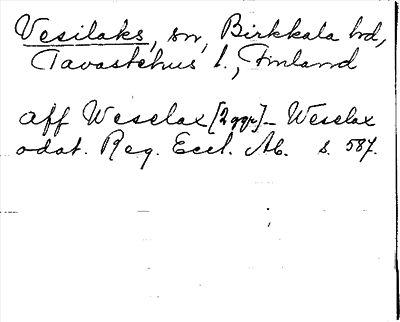 Vesilaks, sn, Birkkala hd,
Tavastehus l., Finland
aff Weselax [2 ggr] - Weselax
odat. Reg. Eccl. Ab. s. 587.